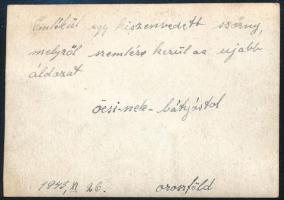 Emlékül egy kiszenvedett szörny,
melyről szemlére kerül az ujabb
áldozat
öcsi-nek - bátyástol
1943, XI 26. oroszföld